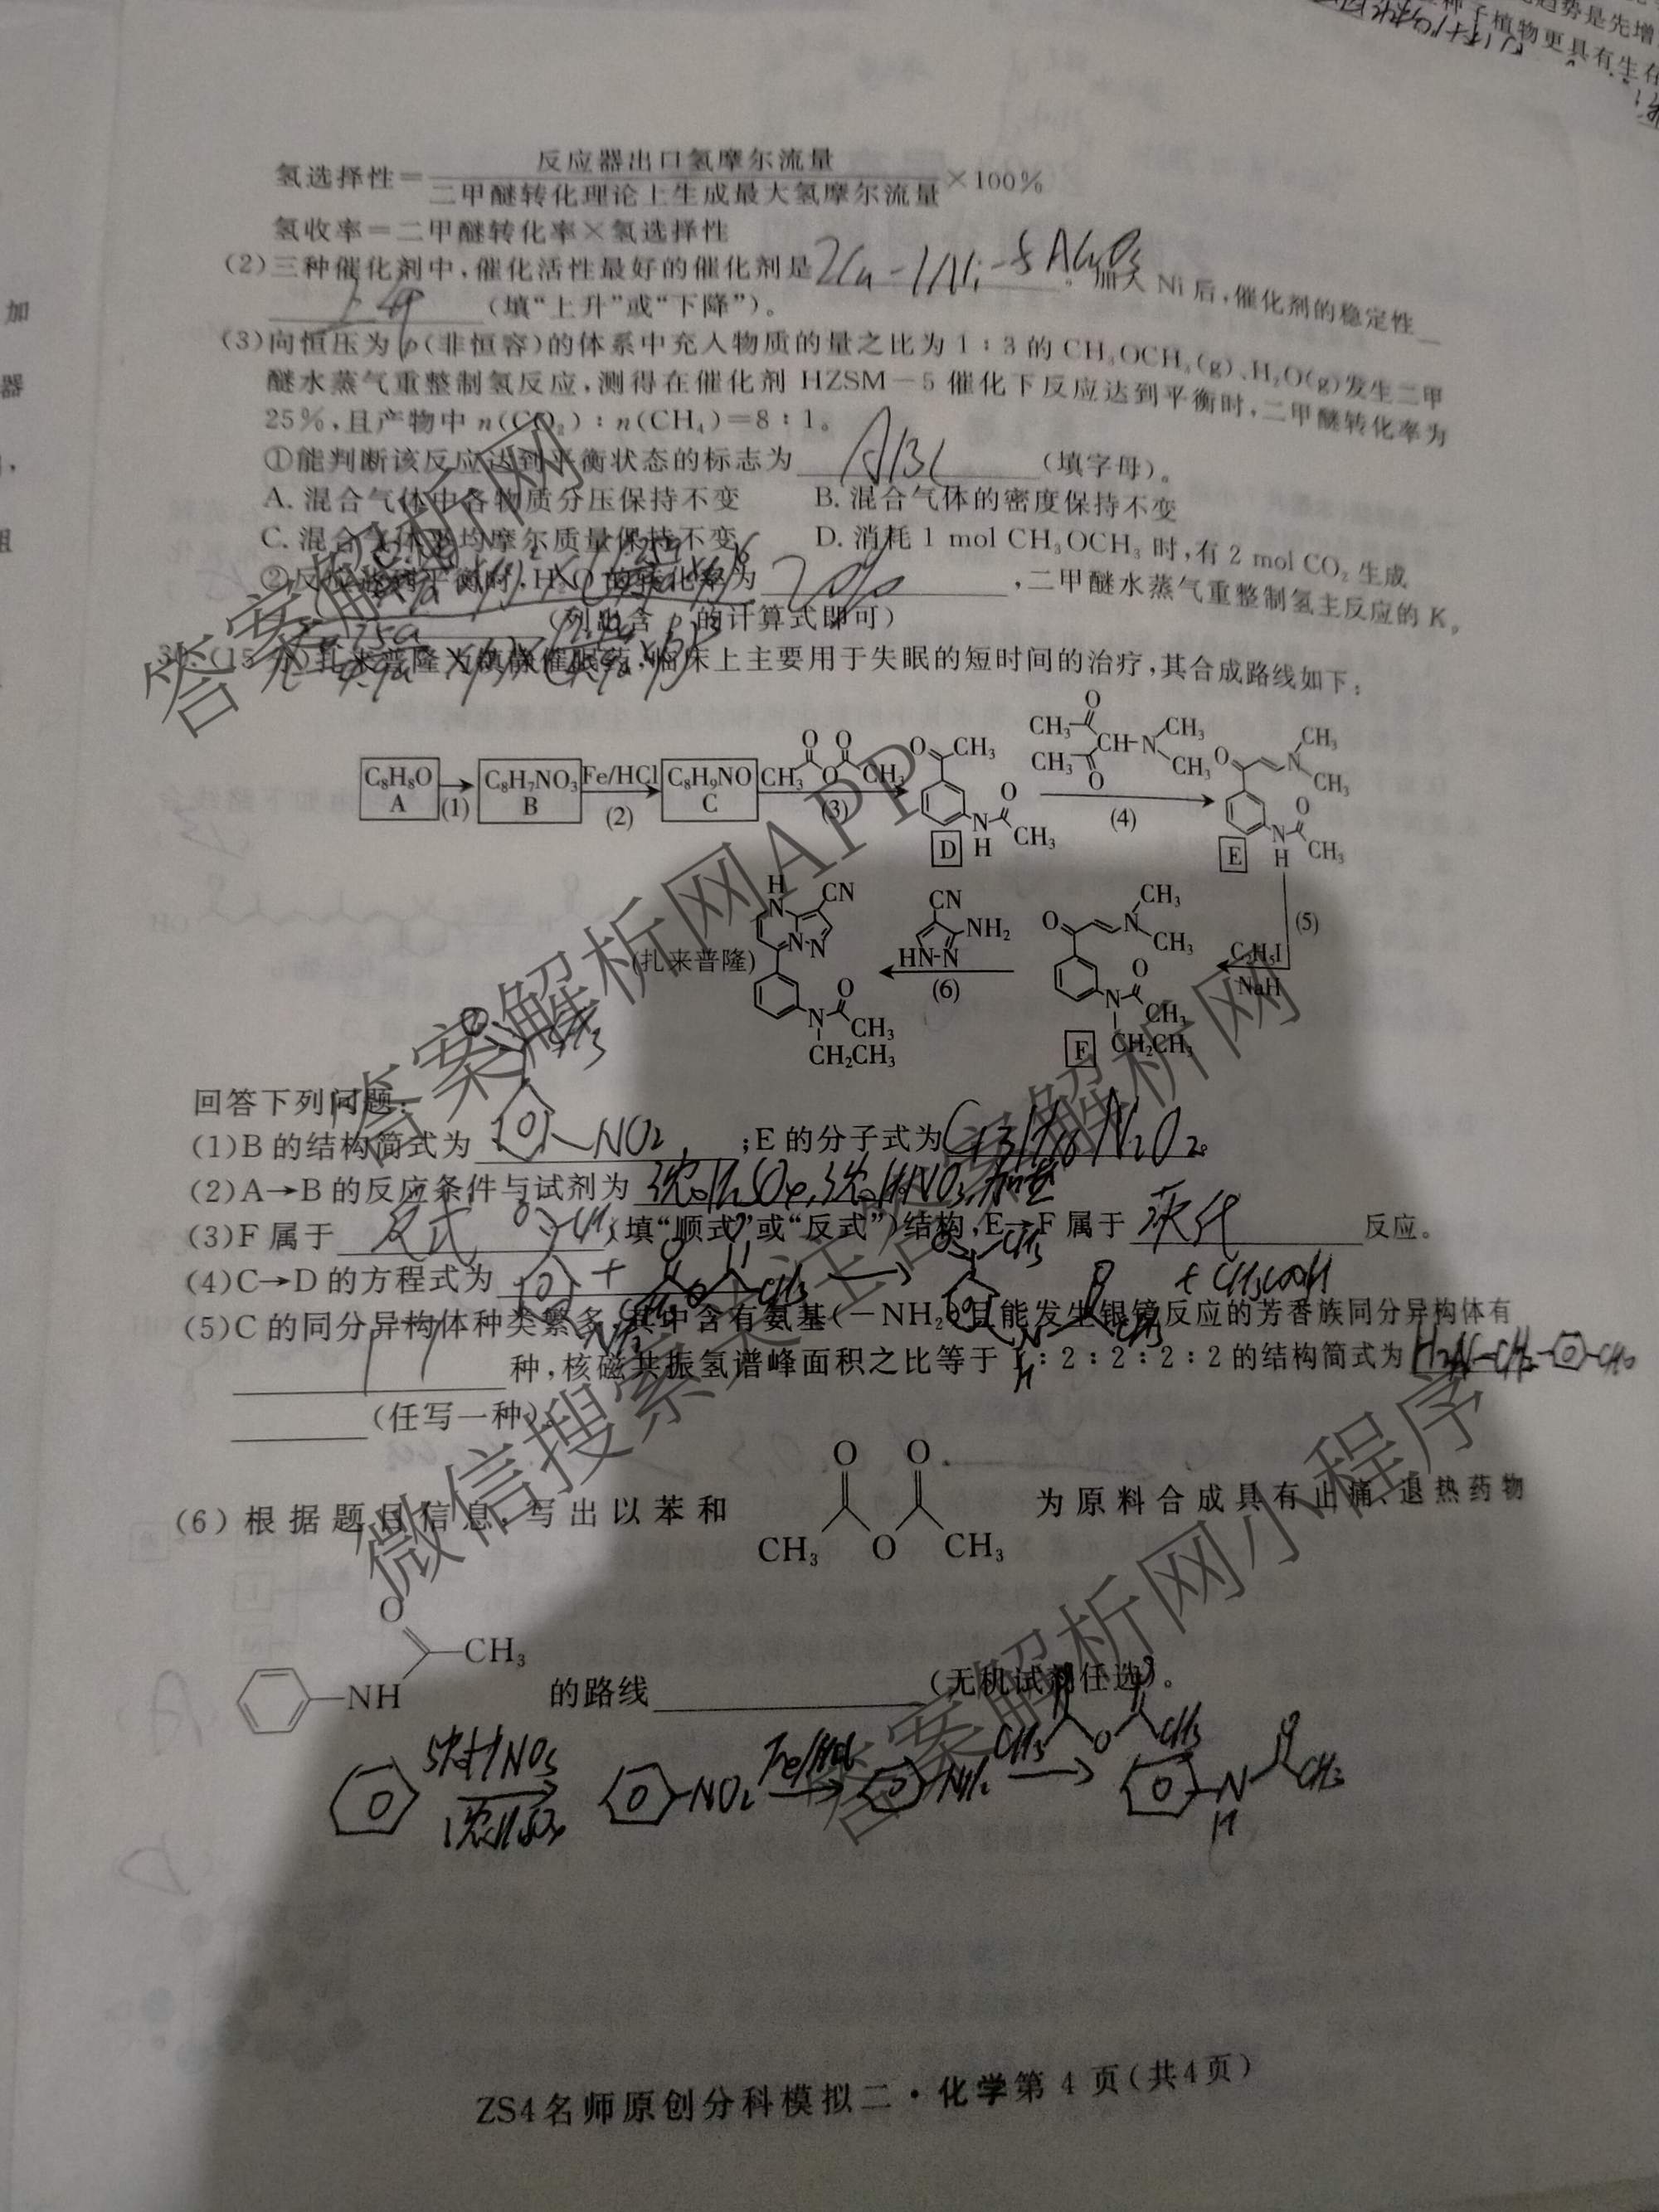 趋势是先增
种子植物更具有生存
加
器
组
氢选择性=反应器出口氢摩尔流量/二甲醚转化理论上生成最大氢摩尔流量×100%
氢收率=二甲醚转化率×氢选择性
(2)三种催化剂中,催化活性最好的催化剂是 。加入 Ni 后,催化剂的稳定性
上升 (填“上升”或“下降”)。
(3)向恒压为 p(非恒容)的体系中充入物质的量之比为 1:3 的 CH₃OCH₃(g)、H₂O(g)发生二甲
醚水蒸气重整制氢反应,测得在催化剂 HZSM-5 催化下反应达到平衡时,二甲醚转化率为
25%,且产物中 n(CO₂):n(CH₄)=8:1。
①能判断该反应达到平衡状态的标志为 ABC (填字母)。
A. 混合气体中各物质分压保持不变 B. 混合气体的密度保持不变
C. 混合气体平均摩尔质量保持不变 D. 消耗 1 mol CH₃OCH₃ 时,有 2 mol CO₂ 生成
②反应达到平衡时,H₂O 的转化率为 20% ,二甲醚水蒸气重整制氢主反应的 Kₚ
(列出含 p 的计算式即可)
(15分)扎来普隆为镇静催眠药,临床上主要用于失眠的短时间的治疗,其合成路线如下:
C₈H₈O A (1) C₈H₇NO₃ B Fe/HCl (2) C₈H₉NO C CH₃ O O O CH₃ (3) O CH₃ N H O CH₃ D (4) CH₃ O CH₃ O CH-N CH₃ CH₃ O N CH₃ CH₃ N H O CH₃ E
(5) C₂H₅I NaH
O N CH₃ CH₃ N O CH₃ CH₂CH₃ F
(6) CN NH₂ HN-N
H N CN N-N (扎来普隆) N O CH₃ CH₂CH₃
回答下列问题:
(1)B 的结构简式为 O CH₃ NO₂ ;E 的分子式为 C₁₃H₁₆N₂O₂。
(2)A→B 的反应条件与试剂为 浓H₂SO₄,浓HNO₃,加热
(3)F 属于 反式 (填“顺式”或“反式”)结构,E→F 属于 取代 反应。
(4)C→D 的方程式为 + → + CH₃COOH
(5)C 的同分异构体种类繁多,其中含有氨基(-NH₂)且能发生银镜反应的芳香族同分异构体有
种,核磁共振氢谱峰面积之比等于 1:2:2:2:2 的结构简式为 H₂N-CH₂- -CHO
(任写一种)。
(6)根据题目信息,写出以苯和 O O CH₃ O CH₃ 为原料合成具有止痛、退热药物
O CH₃ NH 的路线 (无机试剂任选)。
浓HNO₃ 浓H₂SO₄ NO₂ Fe/HCl NH₂ CH₃ O CH₃ N H O CH₃
ZS4名师原创分科模拟二·化学第 4 页(共4页)
答案解析网
答案解析网APP
微信搜索关注答案解析网
答案解析网小程序